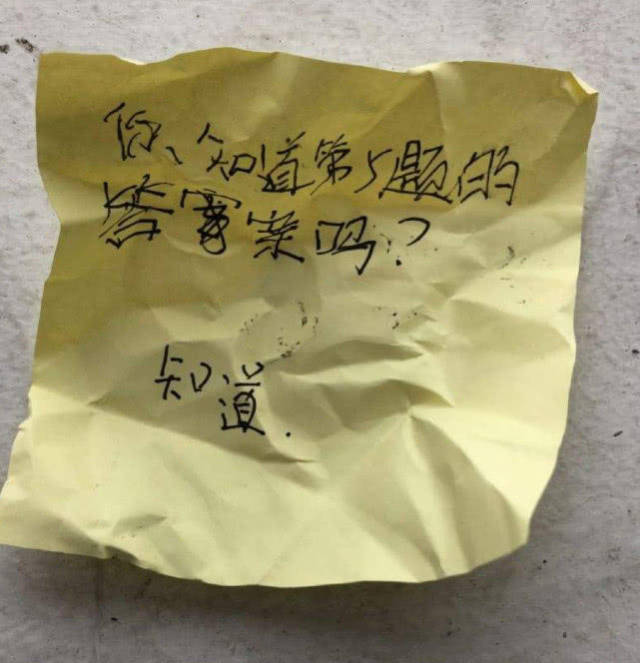 你、知道第5题的
答案吗?
知道.